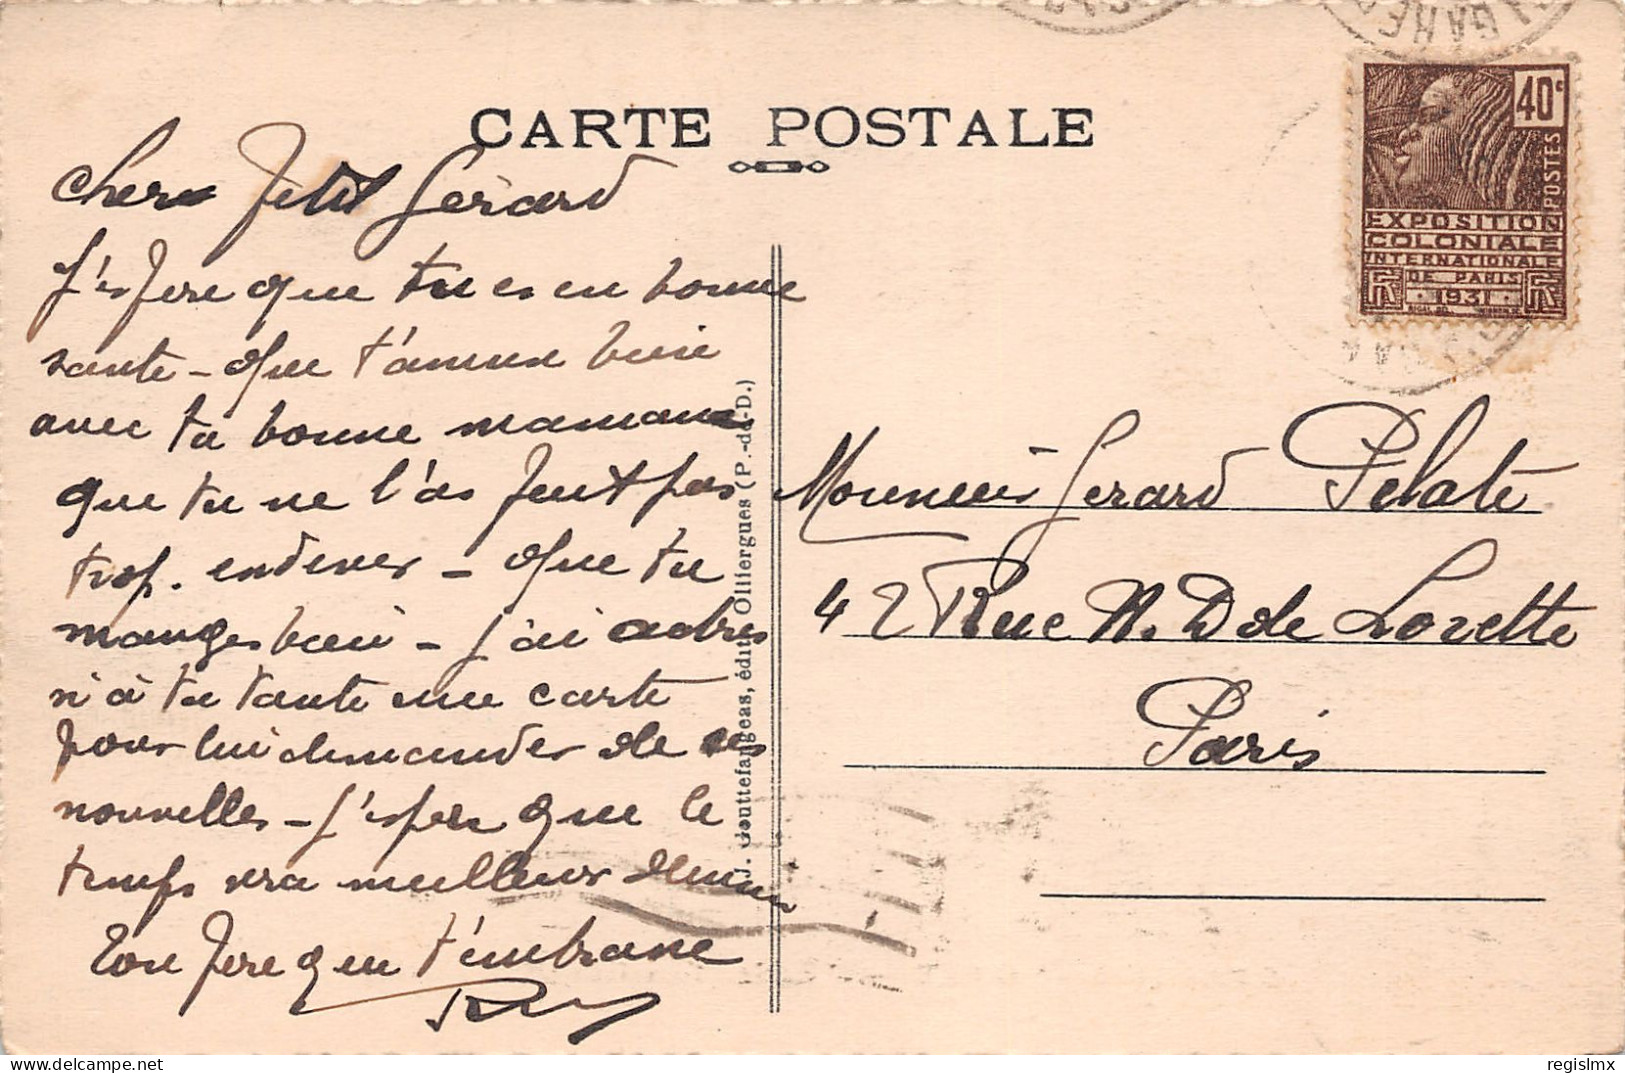 CARTE POSTALE
Cher Petit Gérard
J'espere que tu es en bonne
sante - que t'amuse bien
avec ta bonne maman
que tu ne l'as fait pas
trop. endever - que tu
manges bien - j'ai adres
sé à ta tante une carte
pour lui demander de ses
nouvelles - j'espere que le
temps sera meilleur demain
Ton Pere qui t'embrasse
J. Gouttefangeas, édit. Olliergues (P.-de-D.)
40c
POSTES
EXPOSITION
COLONIALE
INTERNATIONALE
DE PARIS
1931
Monsieur Gerard Pelate
42 Rue N. D de Lorette
Paris
regislmx